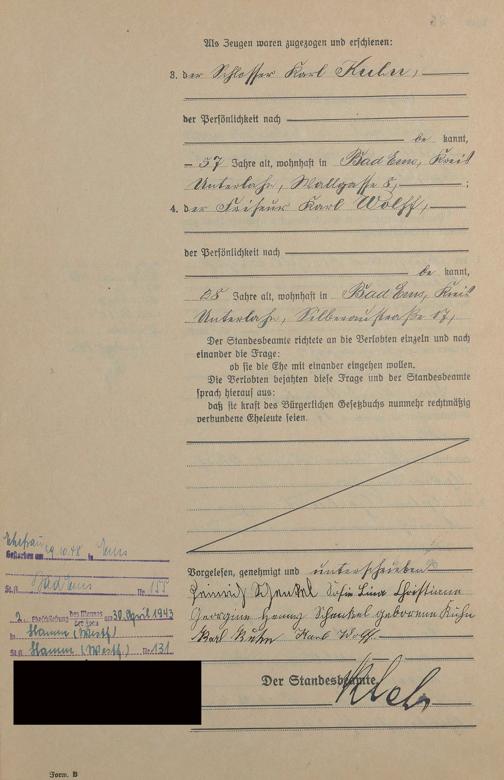 Als Zeugen waren zugezogen und erschienen:
3. der Schlosser Karl Kuhn,
der Persönlichkeit nach
be kannt,
57 Jahre alt, wohnhaft in Bad Ems, Kreis
Unterlahn, Wallgasse 8,
4. der Friseur Karl Wolff,
der Persönlichkeit nach
be kannt,
Jahre alt, wohnhaft in Bad Ems, Kreis
Unterlahn, Silberaustraße 17,
Der Standesbeamte richtete an die Verlobten einzeln und nach
einander die Frage:
ob sie die Ehe mit einander eingehen wollen.
Die Verlobten bejahten diese Frage und der Standesbeamte
sprach hierauf aus:
daß sie kraft des Bürgerlichen Gesetzbuchs nunmehr rechtmäßig
verbundene Eheleute seien.
Vorgelesen, genehmigt und unterschrieben
Heinrich Schenkel Lina Christiane
Georgine Schenkel geborene Kuhn
Karl Kuhn Karl Wolff
Der Standesbeamte.
Ehefrau
Gestorben am 19.10.48 in Ems
St.A. Bad Ems Nr. 155
2. Eheschließung des Mannes am 30. April 1943
in Hamm (Westf.)
St.A. Hamm (Westf.) Nr. 131
Form. B